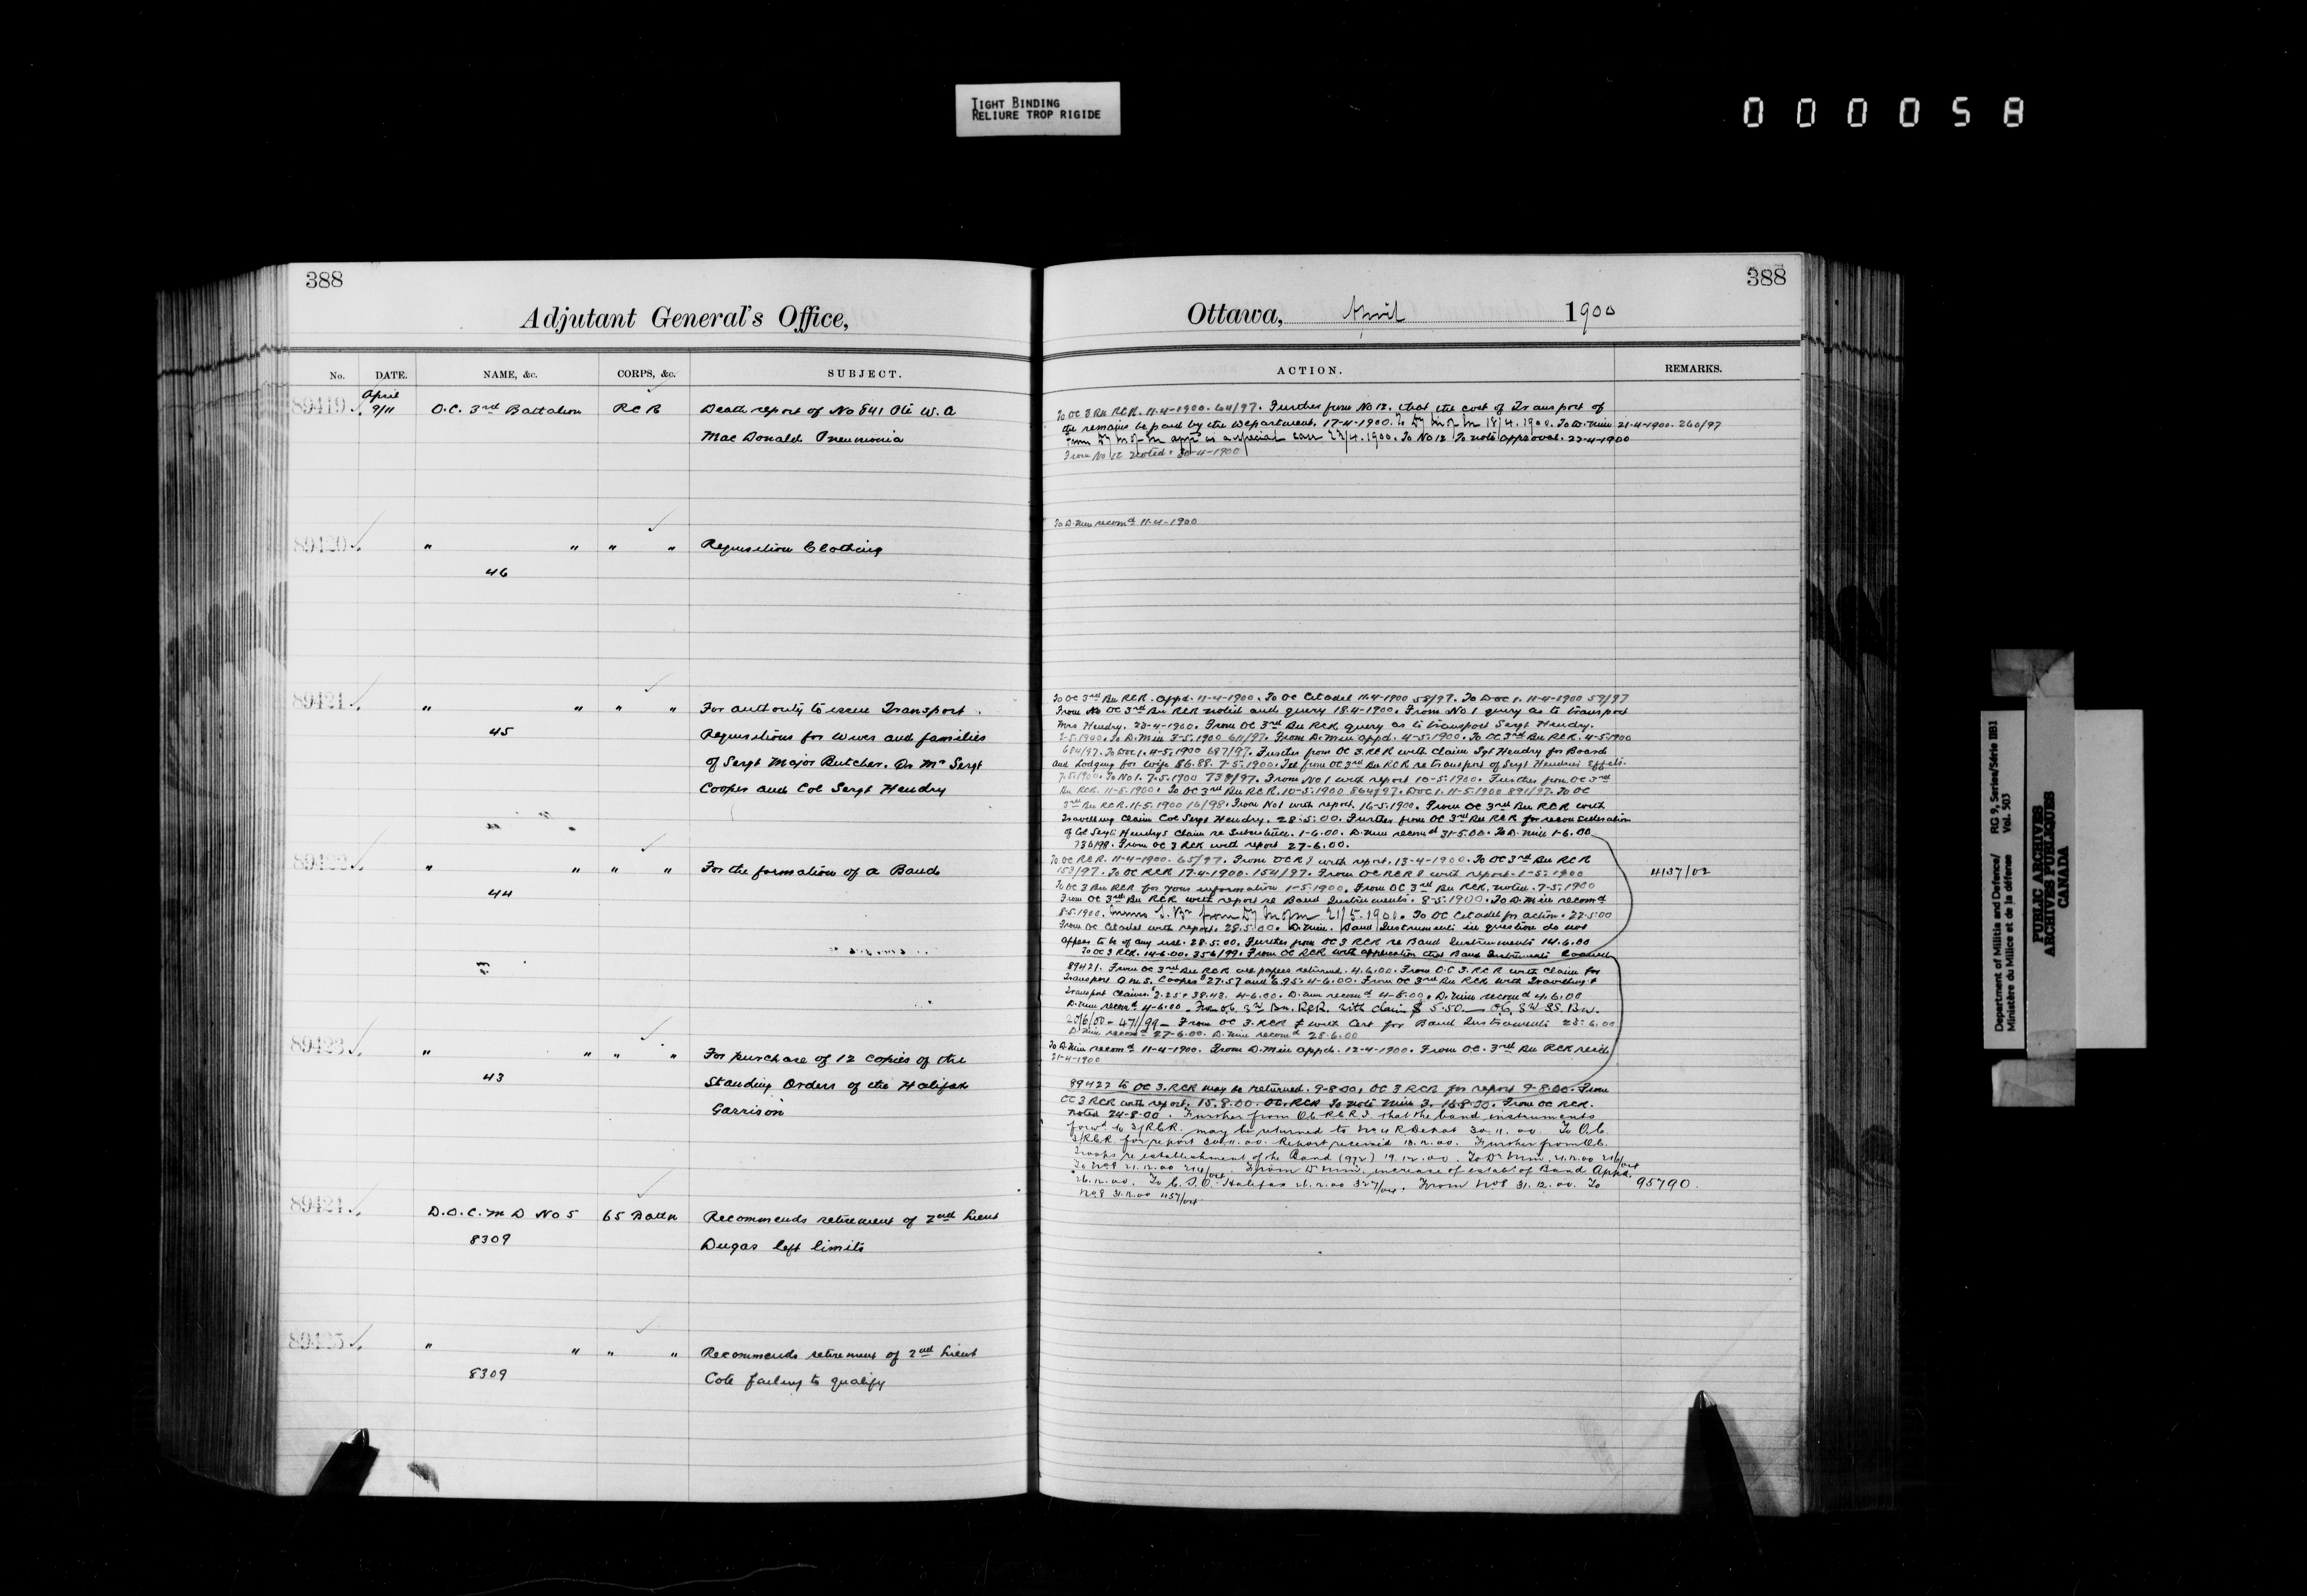 TIGHT BINDING
RELIURE TROP RIGIDE
000058
388
Adjutant General's Office,
No. DATE. NAME, &c. CORPS, &c. SUBJECT.
April
89419 9/11 O.C. 3rd Battalion RCR Death report of No 841 Pte W. A
Mac Donald Pneumonia
89420 " " " " Requisition Clothing
46
89421 " " " " For authority to issue Transport
45 Requisitions for wives and families
of Sergt Major Butcher. Qr Mr Sergt
Cooper and Col Sergt Hendry
89422 " " " " For the formation of a Band
44
89423 " " " " For purchase of 12 copies of the
43 Standing Orders of the Halifax
Garrison
89424 D.O.C. M D No 5 65 Battn Recommends retirement of 2nd Lieut
8309 Dugas left limits
89425 " " " " Recommends retirement of 2nd Lieut
8309 Cote failing to qualify
388
Ottawa, April 1900
ACTION. REMARKS.
To OC 3 Bn RCR. 11-4-1900. 64/97. Further from No 12. that the cost of Transport of
the remains be paid by the Department. 17-4-1900. To Dy M of M 18/4.1900. To D. Min 21-4-1900. 260/97
From Dy M of M appd as a special case 23/4.1900. To No 12 To note approval. 23-4-1900
From No 12 noted. 30-4-1900
To D. Min recomd 11-4-1900
To OC 3rd Bn RCR. appd. 11-4-1900. To OC Citadel 11-4-1900 58/97. To Doc 1. 11-4-1900 59/97
From No OC 3rd Bn RCR noted and query 18-4-1900. From No 1 query as to transport
Mrs Hendry. 23-4-1900. From OC 3rd Bn RCR query as to transport Sergt Hendry.
3-5-1900. To D. Min 3-5-1900 611/97. From D. Min appd. 4-5-1900. To OC 3rd Bn RCR. 4-5-1900
684/97. To Doc 1. 4-5-1900 687/97. Further from OC 3. RCR with claim Sgt Hendry for Board
and Lodging for wife $6.88. 7-5-1900. Tel from OC 3rd Bn RCR re transport of Sergt Hendries effects.
7-5-1900. To No 1. 7-5-1900 738/97. From No 1 with report 10-5-1900. Further from OC 3rd
Bn RCR. 11-5-1900. To OC 3rd Bn RCR. 10-5-1900 864/97. Doc 1. 11-5-1900 891/97. To OC
3rd Bn RCR. 11-5-1900 16/98. From No 1 with report. 16-5-1900. From OC 3rd Bn RCR with
Travelling Claim Col Sergt Hendry. 28-5-00. Further from OC 3rd Bn RCR for reconsideration
of Col Sergt Hendrys claim re Subsistence. 1-6-00. D. Min recomd 31-5-00. To D. Min 1-6-00
736/98. From OC 3 RCR with report 27-6-00.
To OC RCR. 11-4-1900. 65/97. From OC R I with report. 13-4-1900. To OC 3rd Bn RCR
153/97. To OC RCR 17-4-1900. 154/97. From OC RCR I with report. 1-5-1900 4137/02
To OC 3 Bn RCR for your information 1-5-1900. From OC 3rd Bn RCR. noted. 7-5-1900
From OC 3rd Bn RCR with report re Band Instruments. 8-5-1900. To D. Min recomd
8-5-1900. from Dy M of M 21/5.1900. To OC Citadel for action. 22-5-00
From OC Citadel with report. 28-5-00. D. Min. Band Instruments in question do not
appear to be of any use. 28-5-00. Further from OC 3 RCR re Band Instruments 14-6-00
To OC 3 RCR. 14-6-00. 356/99. From OC RCR with application that Band Instruments loaned
89421. From OC 3rd Bn RCR are papers returned. 4-6-00. From O.C 3. RCR with Claim for
Transport Q.M.S. Cooper $27.57 and $6.95. 4-6-00. From OC 3rd Bn RCR with Travelling &
Transport Claims. $2.25 & 38.43. 4-6-00. D. Min recomd 4-6-00. D. Min recomd 4-6-00
D. Min recomd 4-6-00. From O.C. 3rd Bn. RCR. with claim $5.50. OC, 3rd SS. Bn.
20/6/00 - 471/99 - From OC 3. RCR with Cert for Band Instruments 23-6-00
D. Min recomd 27-6-00. D. Min recomd 28-6-00
To D. Min recomd 11-4-1900. From D. Min appd. 12-4-1900. From OC. 3rd Bn RCR recd
21-4-1900
89422 to OC 3. RCR may be returned. 9-8-00. OC 3 RCR for report 9-8-00. From
OC 3 RCR with report. 15-8-00. OC. RCR To note Min 3. 16-8-00. From OC RCR.
noted 24-8-00. Further from O.C. R.C.R.I. that the band instruments
forwd to 3/RCR. may be returned to No 4 R Depot 30.11.00. To O.C.
3/RCR. for report 30.11.00. Report received 13.12.00. Further from O.C.
Troops re establishment of the Band (972) 19.12.00. To D. Min. 21.12.00 216/
To No 8 21.12.00 214/. From D. Min. increase of estab. of Band Appd.
26.12.00. To C.S.O. Halifax 26.12.00 327/. From No 8 31.12.00. To 95790.
No 8 31.12.00 457/
Department of Militia and Defence/ RG 9, Series/Série IIB1
Ministère du Milice et de la défense Vol. 503
PUBLIC ARCHIVES
ARCHIVES PUBLIQUES
CANADA